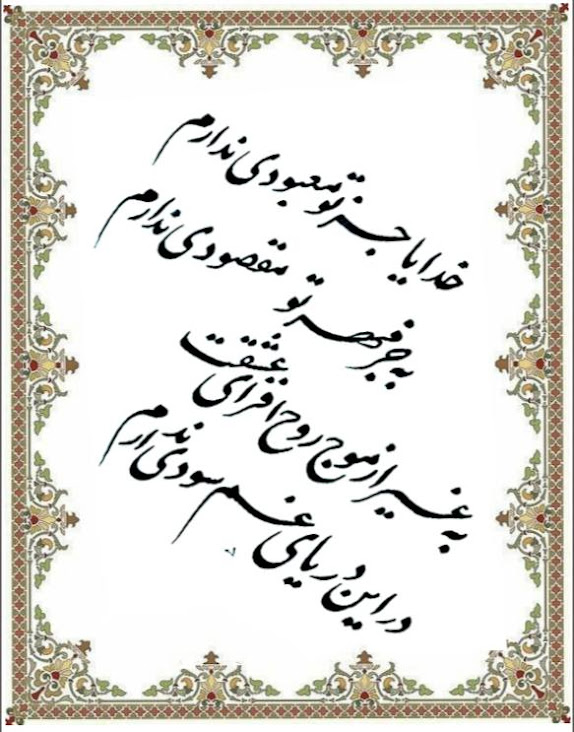 خدایا جز تو معبودی ندارم
به جز مهر تو مقصودی ندارم
به غیر از موج روح افزای عشقت
در این دریای غم سودی ندارم